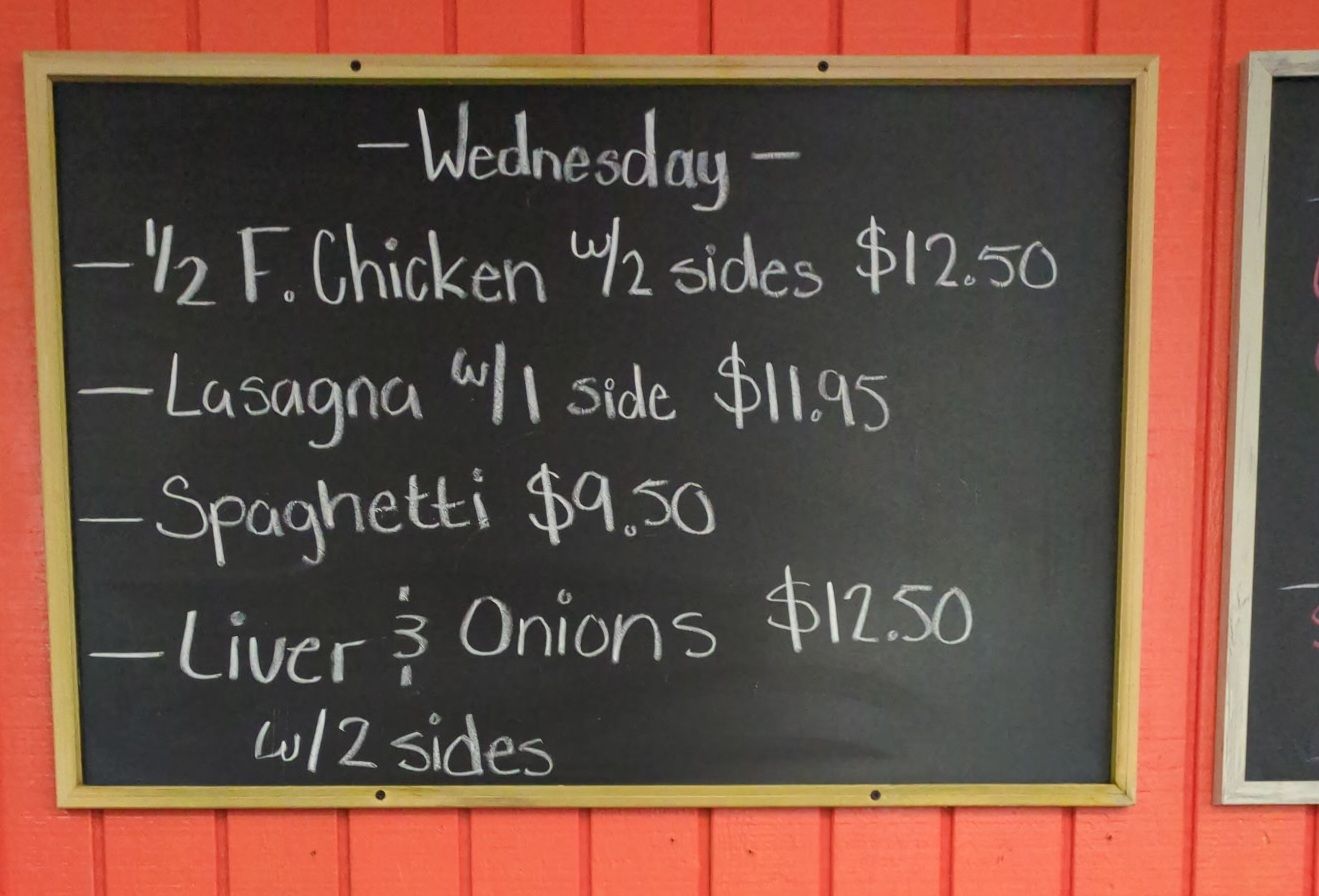 -Wednesday-
-1/2 F. Chicken w/2 sides $12.50
-Lasagna w/1 side $11.95
-Spaghetti $9.50
-Liver & Onions $12.50
w/2 sides